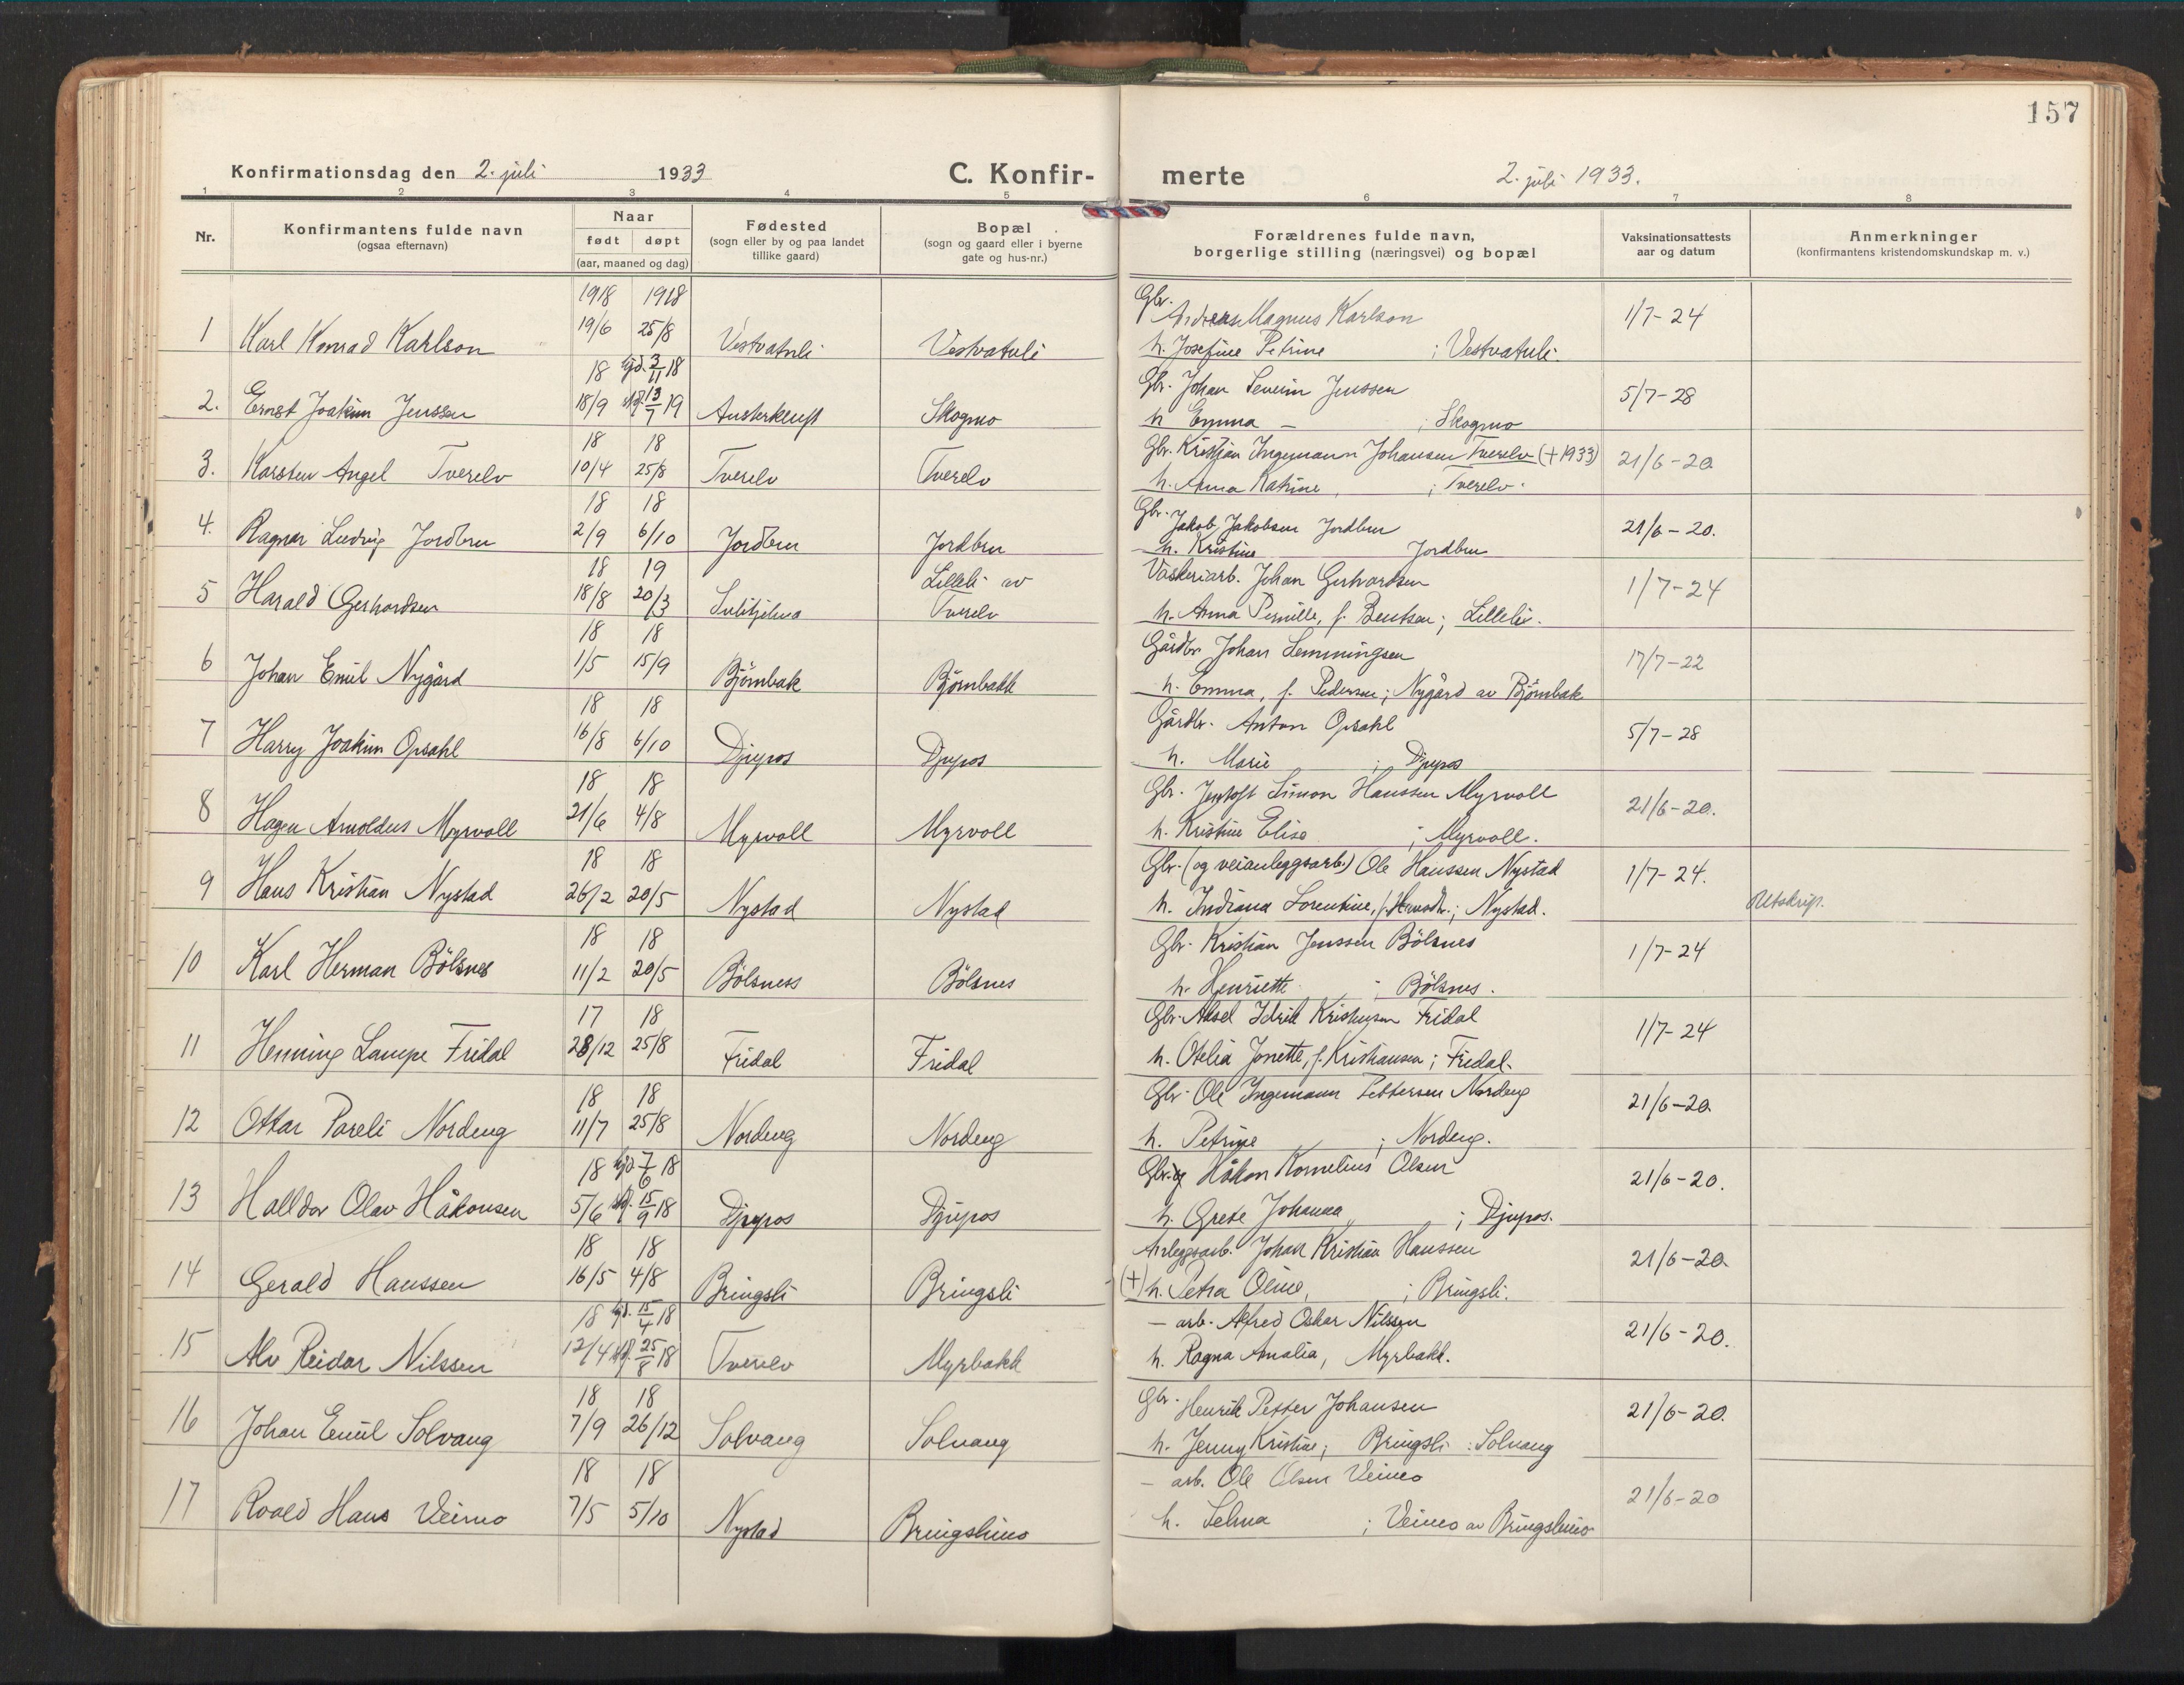 157
Konfirmationsdag den 2. juli 1933 C. Konfir-
merte 2. juli 1933.
1 2 3 4 5 6 7 8
Nr.
Konfirmantens fulde navn
(ogsaa efternavn)
Naar
født døpt
(aar, maaned og dag)
Fødested
(sogn eller by og paa landet
tillike gaard)
Bopæl
(sogn og gaard eller i byerne
gate og hus-nr.)
Forældrenes fulde navn,
borgerlige stilling (næringsvei) og bopæl
Vaksinationsattests
aar og datum
Anmerkninger
(konfirmantens kristendomskundskap m. v.)
1918 1918 Gbr.
1 Karl Konrad Karlson 19/6 25/8 Vestvatnli Vestvatnli Andreas Magnus Karlson 1/7-24
h. Josefine Petrine ; Vestvatnli.
18 hjd. 3/11 18 Gbr. Johan Severin Jenssen
2. Ernst Joakim Jenssen 18/9 13/7 19 Austerkluft Skogmo 5/7-28
h Emma – ; Skogmo
18 18 Gbr. Kristjan Ingemann Johansen Tverelv (+1933)
3. Karsten Angel Tverelv 10/4 25/8 Tverelv Tverelv 21/6-20
h. Anna Katrine, ; Tverelv.
18 18 Gbr. Jakob Jakobsen Jordbru
4. Ragnar Ludvig Jordbru 2/9 6/10 Jordbru Jordbru 21/6-20.
h. Kristine Jordbru
18 19 Lilleli av Vaskeriarb. Johan Gerhardsen
5 Harald Gerhardsen 18/8 20/3 Sulitjelma Tverelv 1/7-24
h. Anna Pernille, f. Bentsen; Lilleli.
18 18 Gårdbr Johan Lemmingsen
6 Johan Emil Nygård 1/5 15/9 Bjömbak Bjömbakk 17/7-22
h. Emma, f. Pedersen; Nygård av Bjömbak
18 18 Gårdbr. Anton Opsahl
7 Harry Joakim Opsahl 16/8 6/10 Djupos Djupos 5/7-28
h. Marie ; Djupos
18 18 Gbr. Jentoft Simon Hanssen Myrvoll
8 Hagen Arnoldus Myrvoll 21/6 4/8 Myrvoll Myrvoll 21/6-20.
h. Kristine Elise ; Myrvoll.
18 18 Gbr. (og veianleggsarb.) Ole Hanssen Nystad
9 Hans Kristian Nystad 26/2 20/5 Nystad Nystad 1/7-24.
h. Indiana Lorentine, ; Nystad. Utskrip.
18 18 Gbr. Kristian Jenssen Bölsnes
10 Karl Herman Bölsnes 11/2 20/5 Bölsness Bölsnes 1/7-24
h. Henriette ; Bölsnes.
17 18 Gbr. Aksel Idrik Kristensen Fridal
11 Henning Lampe Fridal 28/12 25/8 Fridal Fridal 1/7-24
h. Otelia Jonette, f. Kristiansen; Fridal.
18 18 Gbr. Ole Ingemann Pettersen Nordeng
12 Ottar Pareli Nordeng 11/7 25/8 Nordeng Nordeng 21/6-20
h. Petrine ; Nordeng.
18 hjd. 7/6 18 Håkon Kornelius Olsen
13 Halldor Olav Håkonsen 5/6 15/9 18 Djupos Djupos 21/6-20.
h. Grete Johanna ; Djupos.
18 18 Anleggsarb. Johan Kristian Hanssen
14 Gerald Hanssen 16/5 4/8 Bringsli Bringsli 21/6-20.
(+) h. Petra Oline, ; Bringsli.
18 hjd. 15/4 18 – arb. Alfred Oskar Nilssen
15 Alv Reidar Nilssen 12/4 25/8 18 Tverelv Myrbakk 21/6-20.
h. Ragna Amalia, Myrbakk.
18 18 Gbr. Henrik Petter Johansen
16 Johan Emil Solvang 7/9 26/12 Solvang Solvang 21/6-20.
h. Jenny Kristine; Bringsli : Solvang
18 18 – arb. Ole Olsen Veimo
17 Roald Hans Veimo 7/5 5/10 Nystad Bringslimo 21/6-20
h. Selma ; Veimo av Bringslimo